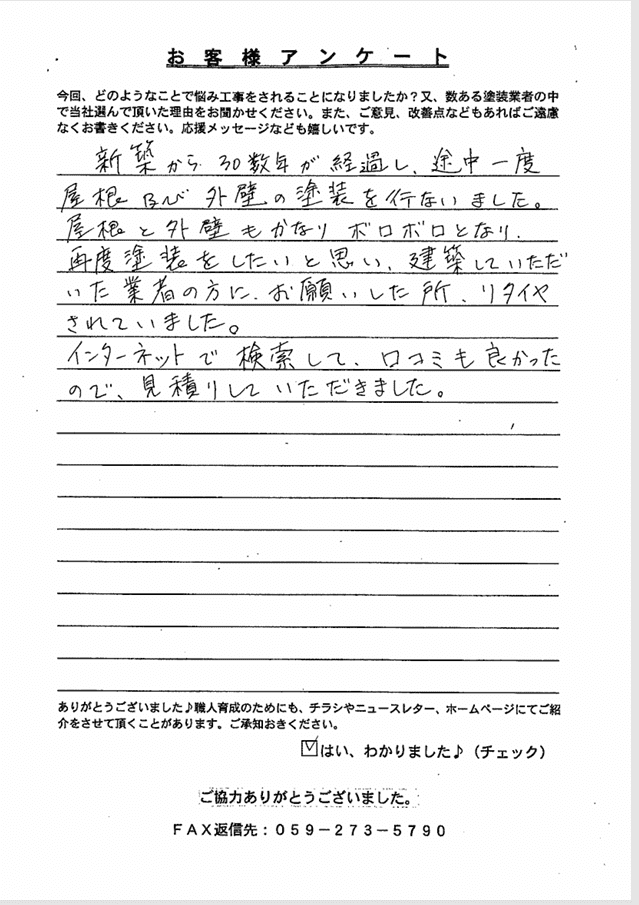 お客様アンケート
今回、どのようなことで悩み工事をされることになりましたか？又、数ある塗装業者の中
で当社選んで頂いた理由をお聞かせください。また、ご意見、改善点などもあればご遠慮
なくお書きください。応援メッセージなども嬉しいです。
新築から30数年が経過し、途中一度
屋根及び外壁の塗装を行ないました。
屋根と外壁もかなりボロボロとなり、
再度塗装をしたいと思い、建築していただ
いた業者の方に、お願いした所、リタイヤ
されていました。
インターネットで検索して、口コミも良かった
ので、見積りしていただきました。
ありがとうございました♪職人育成のためにも、チラシやニュースレター、ホームページにてご紹
介をさせて頂くことがあります。ご承知おきください。
☑はい、わかりました♪（チェック）
ご協力ありがとうございました。
ＦＡＸ返信先：０５９－２７３－５７９０